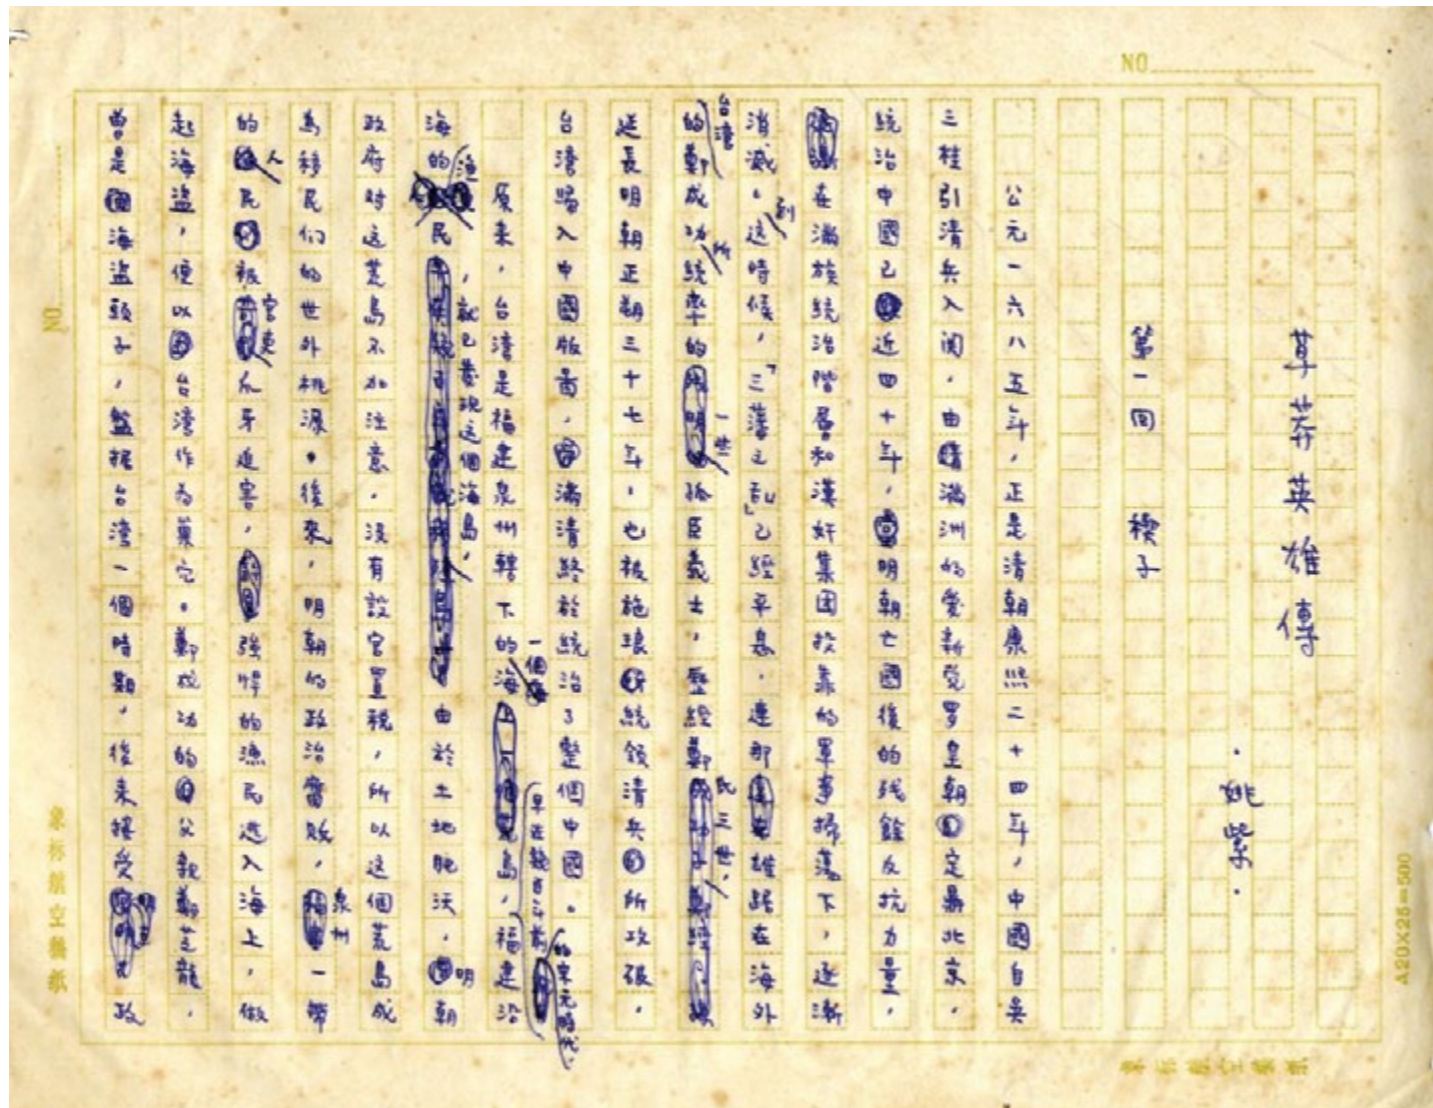 NO
草莽英雄傳
·姚紫·
第一回 楔子
公元一六八五年，正是清朝康熙二十四年，中國自吳
三桂引清兵入関，由滿洲的愛新覚罗皇朝定鼎北京，
統治中國已近四十年，明朝亡國後的残餘反抗力量，
在滿族統治階層和漢奸集团投靠的軍事掃蕩下，逐漸
消滅。到这時候，「三藩之乱」已經平息，連那雄踞在海外
台灣的鄭成功所統率的一些孤臣義士，歷經鄭氏三世，
延長明朝正朔三十七年，也被施琅統領清兵所攻破，
台灣歸入中國版啚，滿清終於統治了整個中國。
原来，台灣是福建泉州轄下的一個海島，早在数百年前的宋元時代，福建沿
海的漁民，就已發現这個海島，由於土地肥沃，明朝
政府对这荒島不加注意，沒有設官置税，所以这個荒島成
為移民们的世外桃源。後來，明朝的政治腐敗，泉州一帶
的人民被官吏爪牙迫害，強悍的漁民逃入海上，做
起海盜，便以台灣作為巢穴。鄭成功的父親鄭芝龍，
曾是海盜頭子，盤据台灣一個時期，後来接受政
NO
泉标航空稿紙
A20X25=500
泉标航空稿紙